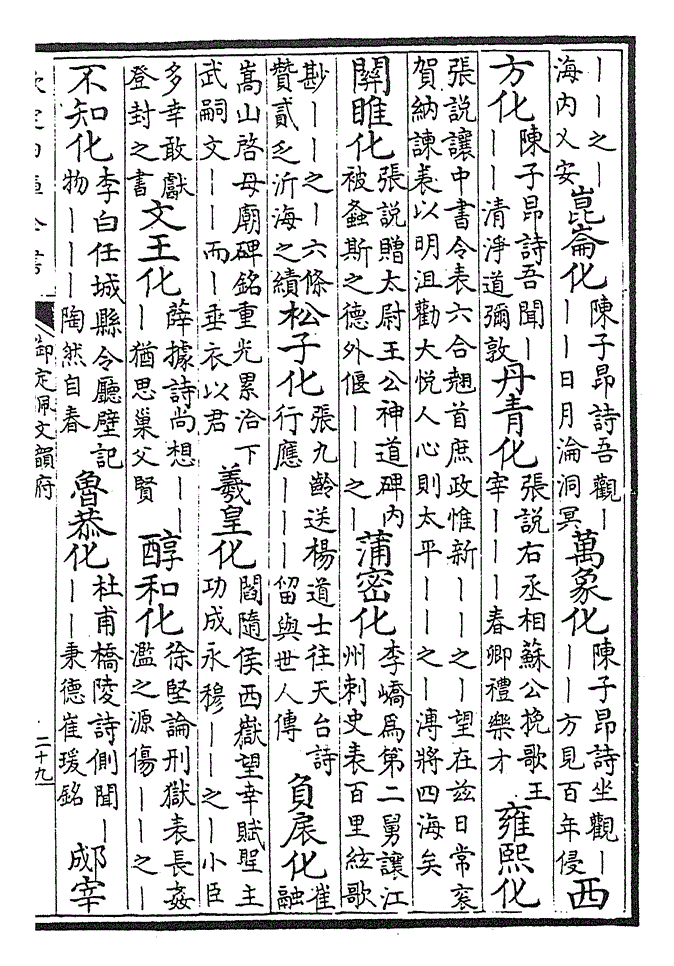 ——之—海内乂安崑崙化陳子昂詩吾觀———日月淪洞冥萬象化陳子昂詩坐觀———方見百年侵西
方化陳子昂詩吾聞———清淨道彌敦丹青化張說右丞相蘇公挽歌王宰———春卿禮樂才雍熙化
張說讓中書令表六合翹首庶政惟新———之—望在兹日常衮
賀納諌表以明沮勸大悦人心則太平———之—溥將四海矣
關睢化張說贈太尉王公神道碑内被螽斯之德外偃———之—蒲密化李嶠爲第二舅讓江州刺史表百里絃歌
尠——之—六條贊貳乏沂海之績松子化張九齡送楊道士往天台詩行應———留與世人傳負扆化崔融
嵩山啓母廟碑銘重光累洽下武嗣文——而—垂衣以君羲皇化閻隨侯西嶽望幸賦聖主功成永穆——之—小臣
多幸敢獻登封之書文王化薛據詩尚想———猶思巢父賢醇和化徐堅論刑獄表長姦濫之源傷——之—
不知化李白任城縣令廳壁記物———陶然自春魯恭化杜甫橋陵詩側聞———秉德崔瑗銘郕宰
欽定四庫全書
御定佩文韻府
二十九